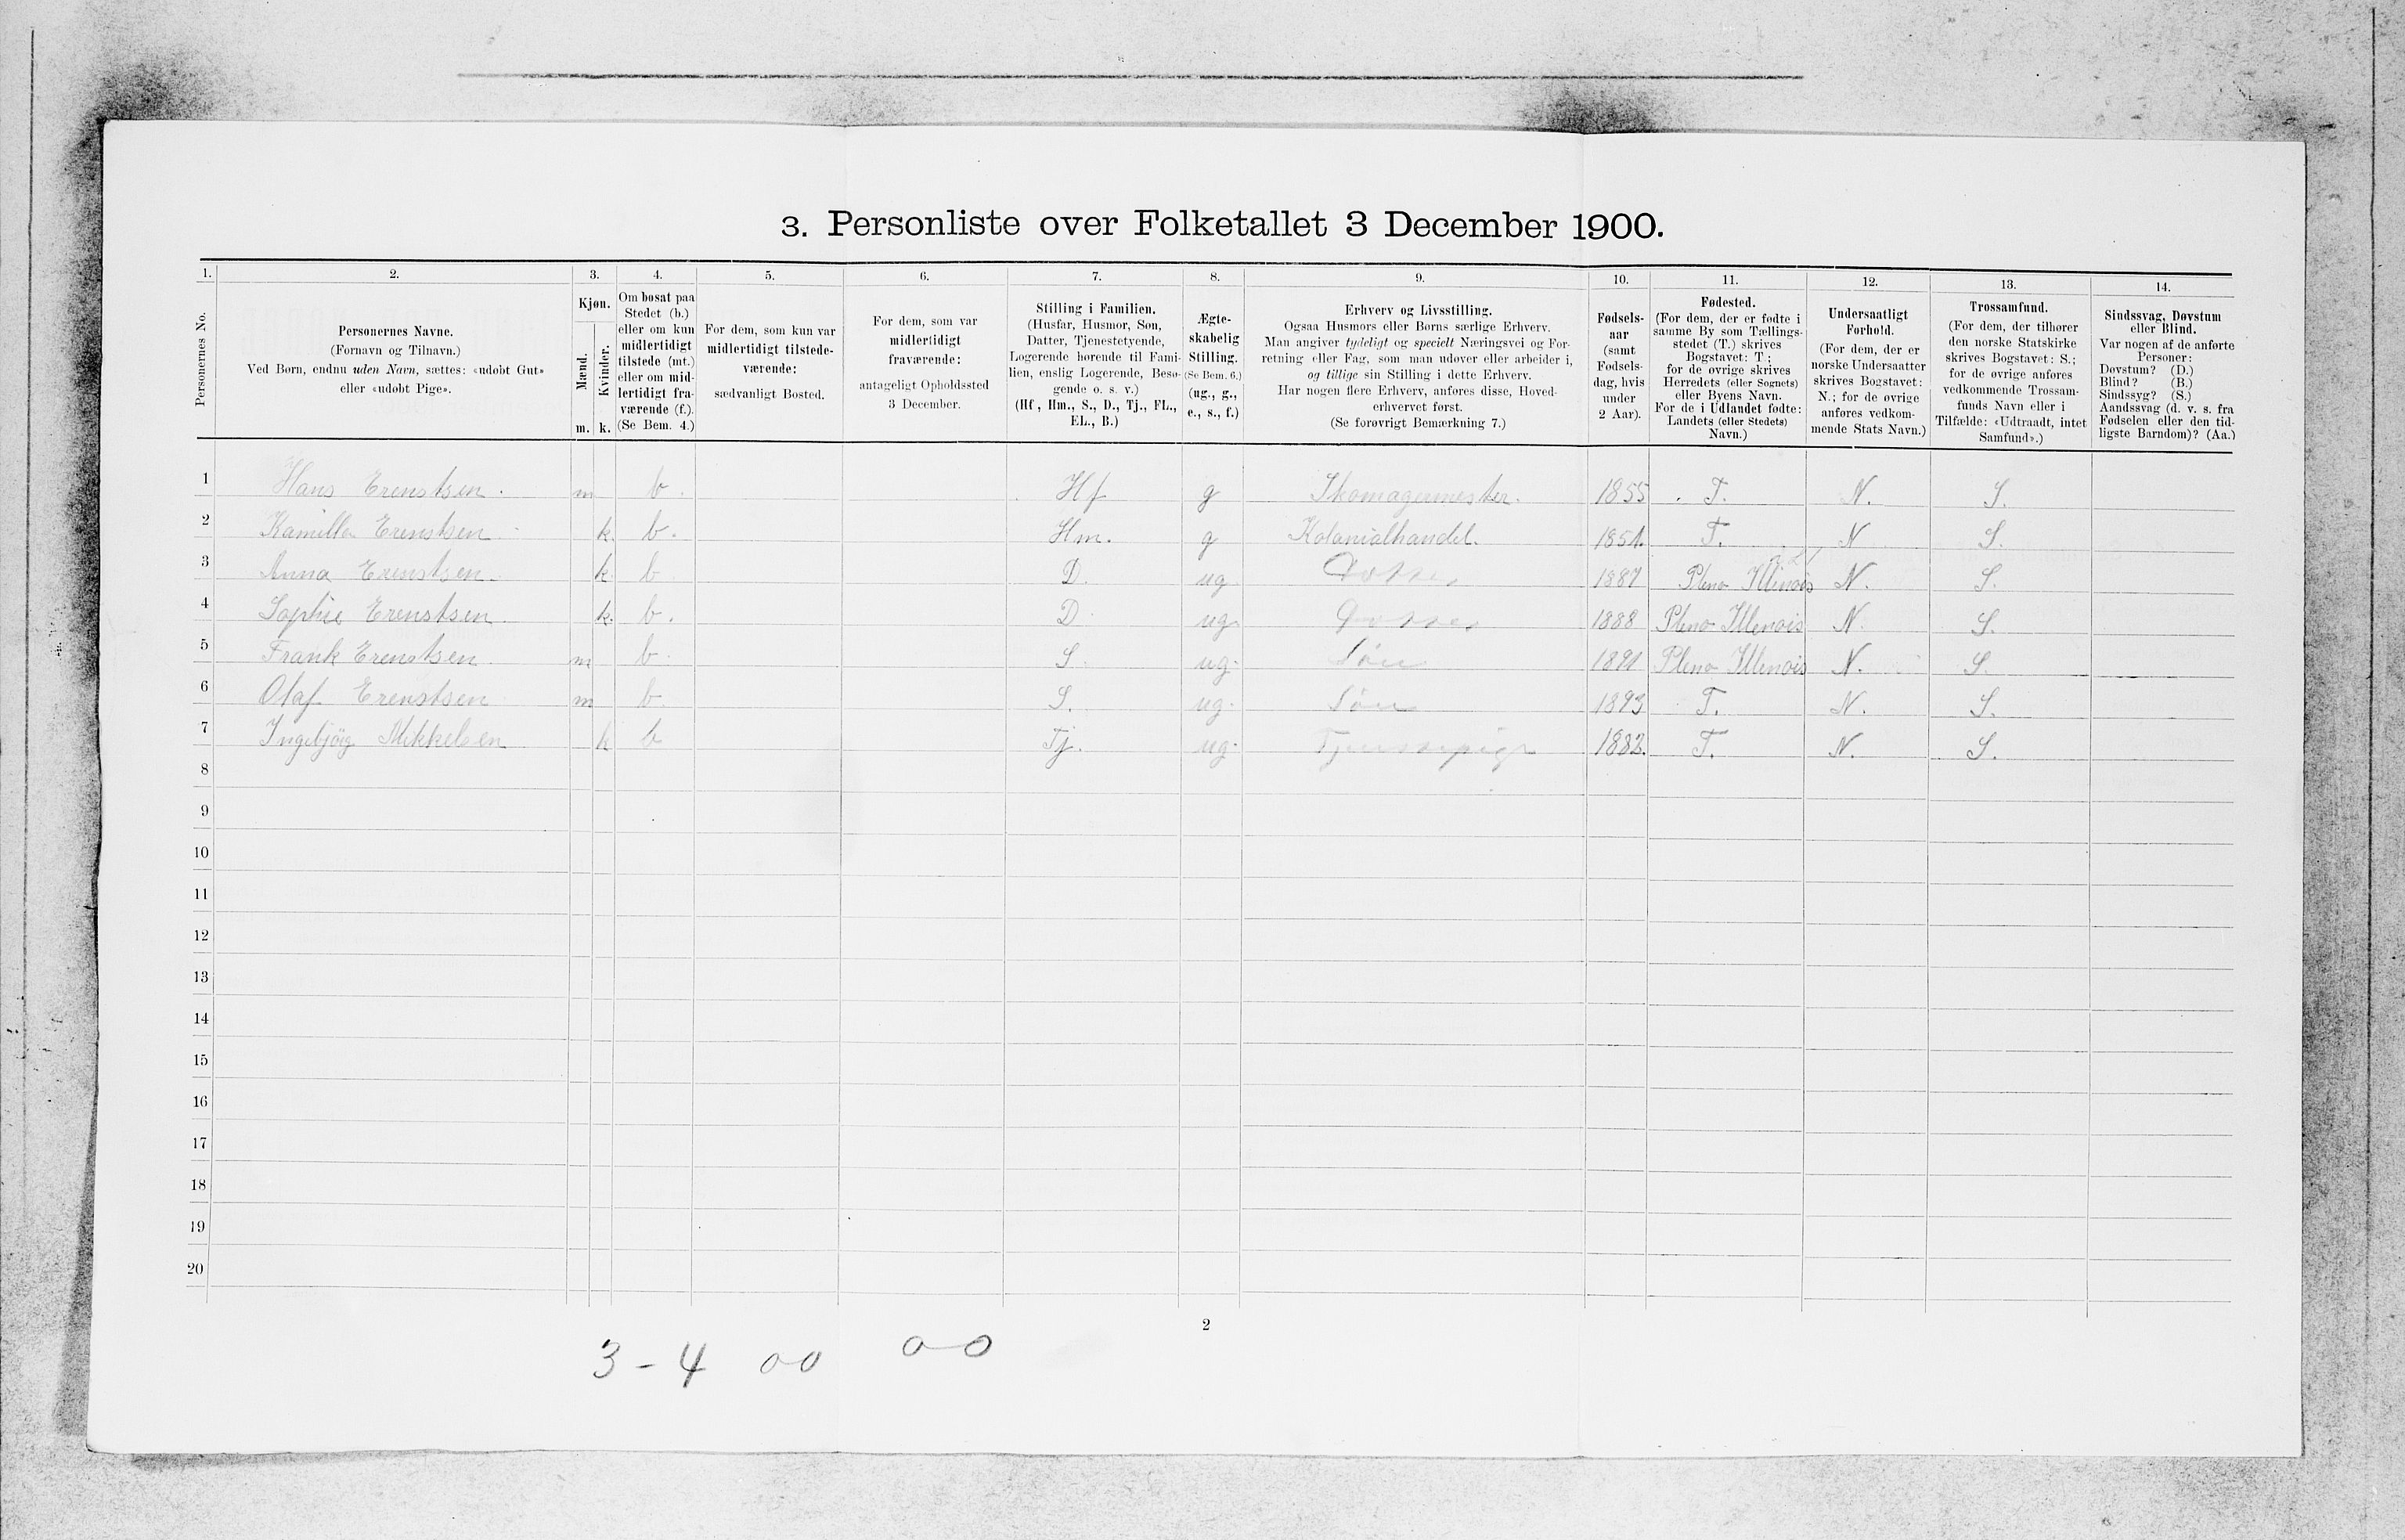 3. Personliste over Folketallet 3 December 1900.
1. 2. 3. 4. 5. 6. 7. 8. 9. 10. 11. 12. 13. 14.
Personernes No.
Personernes Navne.
(Fornavn og Tilnavn.)
Ved Børn, endnu uden Navn, sættes: «udøbt Gut»
eller «udøbt Pige».
Kjøn.
Mænd.
Kvinder.
m. k.
Om bosat paa
Stedet (b.)
eller om kun
midlertidigt
tilstede (mt.)
eller om mid-
lertidigt fra-
værende (f.).
(Se Bem. 4.)
For dem, som kun var
midlertidigt tilstede-
værende:
sædvanligt Bosted.
For dem, som var
midlertidigt
fraværende:
antageligt Opholdssted
3 December.
Stilling i Familien.
(Husfar, Husmor, Søn,
Datter, Tjenestetyende,
Logerende hørende til Fami-
lien, enslig Logerende, Besø-
gende o. s. v.)
(Hf, Hm., S., D., Tj., FL.,
EL., B.)
Ægte-
skabelig
Stilling.
(Se Bem. 6.)
(ug., g.,
e., s., f.)
Erhverv og Livsstilling.
Ogsaa Husmors eller Børns særlige Erhverv.
Man angiver tydeligt og specielt Næringsvei og For-
retning eller Fag, som man udøver eller arbeider i,
og tillige sin Stilling i dette Erhverv.
Har nogen flere Erhverv, anføres disse, Hoved-
erhvervet først.
(Se forøvrigt Bemærkning 7.)
Fødsels-
aar
(samt
Fødsels-
dag, hvis
under
2 Aar).
Fødested.
(For dem, der er fødte i
samme By som Tællings-
stedet (T.) skrives
Bogstavet: T.;
for de øvrige skrives
Herredets (eller Sognets)
eller Byens Navn.
For de i Udlandet fødte:
Landets (eller Stedets)
Navn.)
Undersaatligt
Forhold.
(For dem, der er
norske Undersaatter
skrives Bogstavet:
N.; for de øvrige
anføres vedkom-
mende Stats Navn.)
Trossamfund.
(For dem, der tilhører
den norske Statskirke
skrives Bogstavet: S.;
for de øvrige anføres
vedkommende Trossam-
funds Navn eller i
Tilfælde: «Udtraadt, intet
Samfund».)
Sindssvag, Døvstum
eller Blind.
Var nogen af de anførte
Personer:
Døvstum? (D.)
Blind? (B.)
Sindssyg? (S.)
Aandssvag (d. v. s. fra
Fødselen eller den tid-
ligste Barndom)? (Aa.)
1 Hans Erenstsen. m b. Hf g Skomagermester. 1855 T. N. S.
2 Kamilla Erenstsen k. b. Hm. g Kolonialhandel. 1851. T. N S.
3 Anna Erenstsen. k b. D. ug 1887 Pleno Illinois N. S.
4 Sophie Erenstsen k. b. D. ug. 1888 Pleno Illenois N. S.
5 Frank Erenstsen m b. S. ug. Søn 1891 Pleno Illenois N. S.
6 Olaf Erenstsen m b. S. ug. Søn 1893 T. N. S.
7 Ingebjörg Mikkelsen k b Tj. ug. Tjenestepige 1882. T. N. S.
8
9
10
11
12
13
14
15
16
17
18
19
20
2
3 - 4 00 0-0